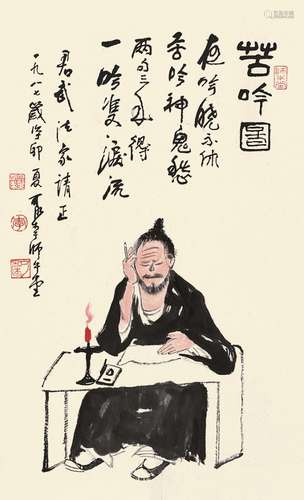 苦吟圖
夜吟曉不休
苦吟神鬼愁
两句三年得
一吟雙淚流
君武法家請正
一九八七歲次丁卯夏可染于師牛堂